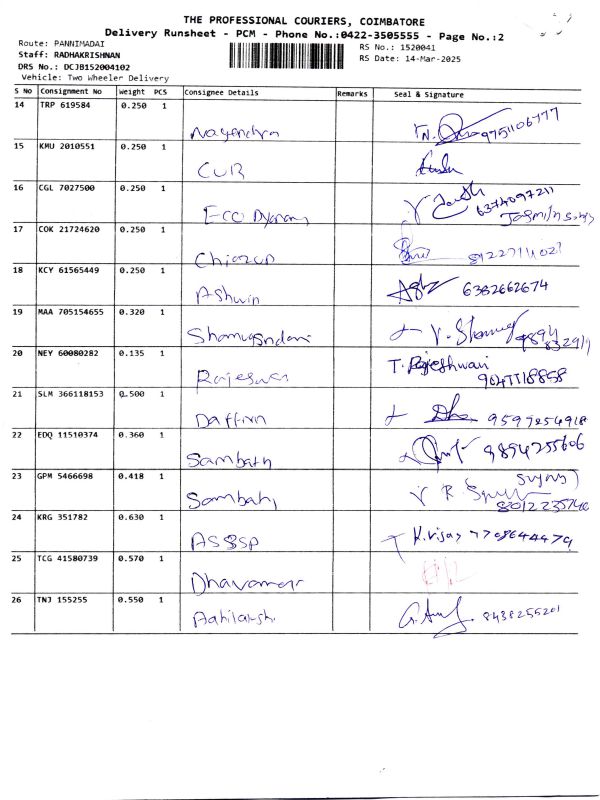 THE PROFESSIONAL COURIERS, COIMBATORE
Delivery Runsheet - PCM - Phone No.:0422-3505555 - Page No.:2
Route: PANNIMADAI
RS No.: 1520041
Staff: RADHAKRISHNAN
RS Date: 14-Mar-2025
DRS No.: DCJB152004102
Vehicle: Two Wheeler Delivery
S No Consignment No Weight PCS Consignee Details Remarks Seal & Signature
14 TRP 619584 0.250 1
Nagendra 9751106777
15 KMU 2010551 0.250 1
CUB
16 CGL 7027500 0.250 1
6374097211
Eco
17 COK 21724620 0.250 1
18 KCY 61565449 0.250 1
Ashwin 6382662674
19 MAA 705154655 0.320 1
20 NEY 60080282 0.135 1
T. Rajeshwari
21 SLM 366118153 0.500 1
Daffin 9597254918
22 EDQ 11510374 0.360 1
Sambath 9894255606
23 GPM 5466698 0.418 1
Sambath
24 KRG 351782 0.630 1
ASSSP K.vijay 7708644479
25 TCG 41580739 0.570 1
26 TNJ 155255 0.550 1
8438255201